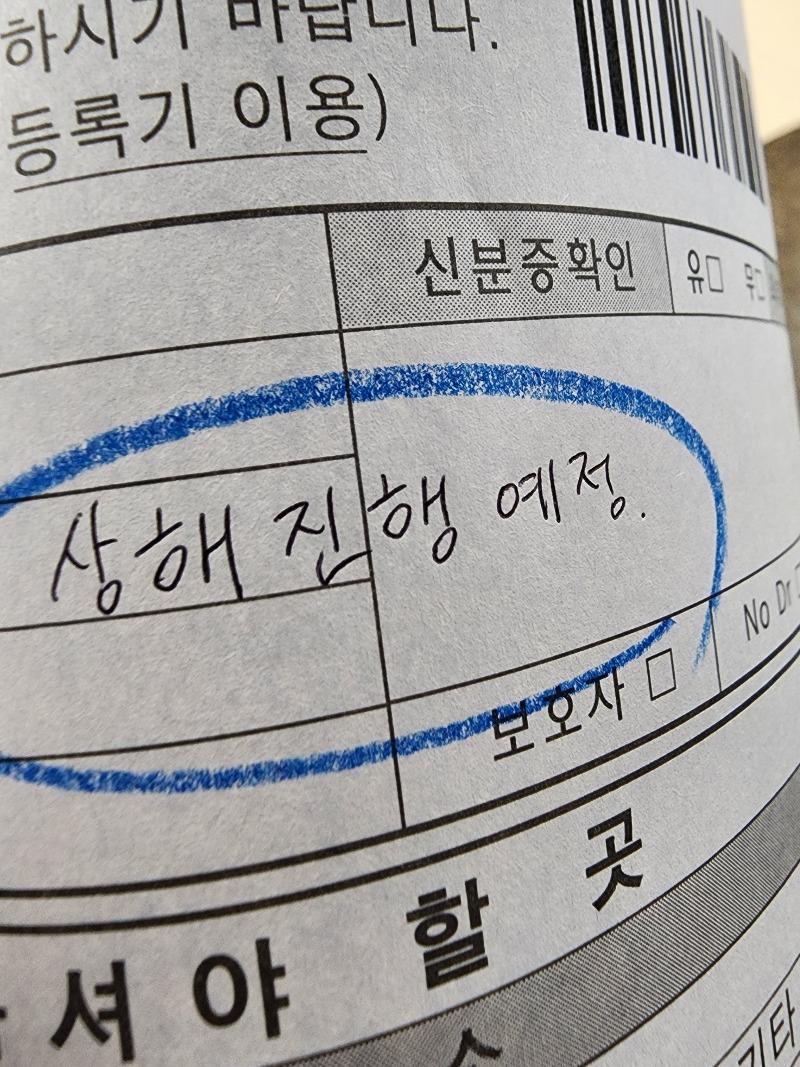 하시기 바랍니다.
등록기 이용)
신분증확인 유□ 무□
상해 진행 예정.
보호자 □ No Dr
셔야 할 곳
기타